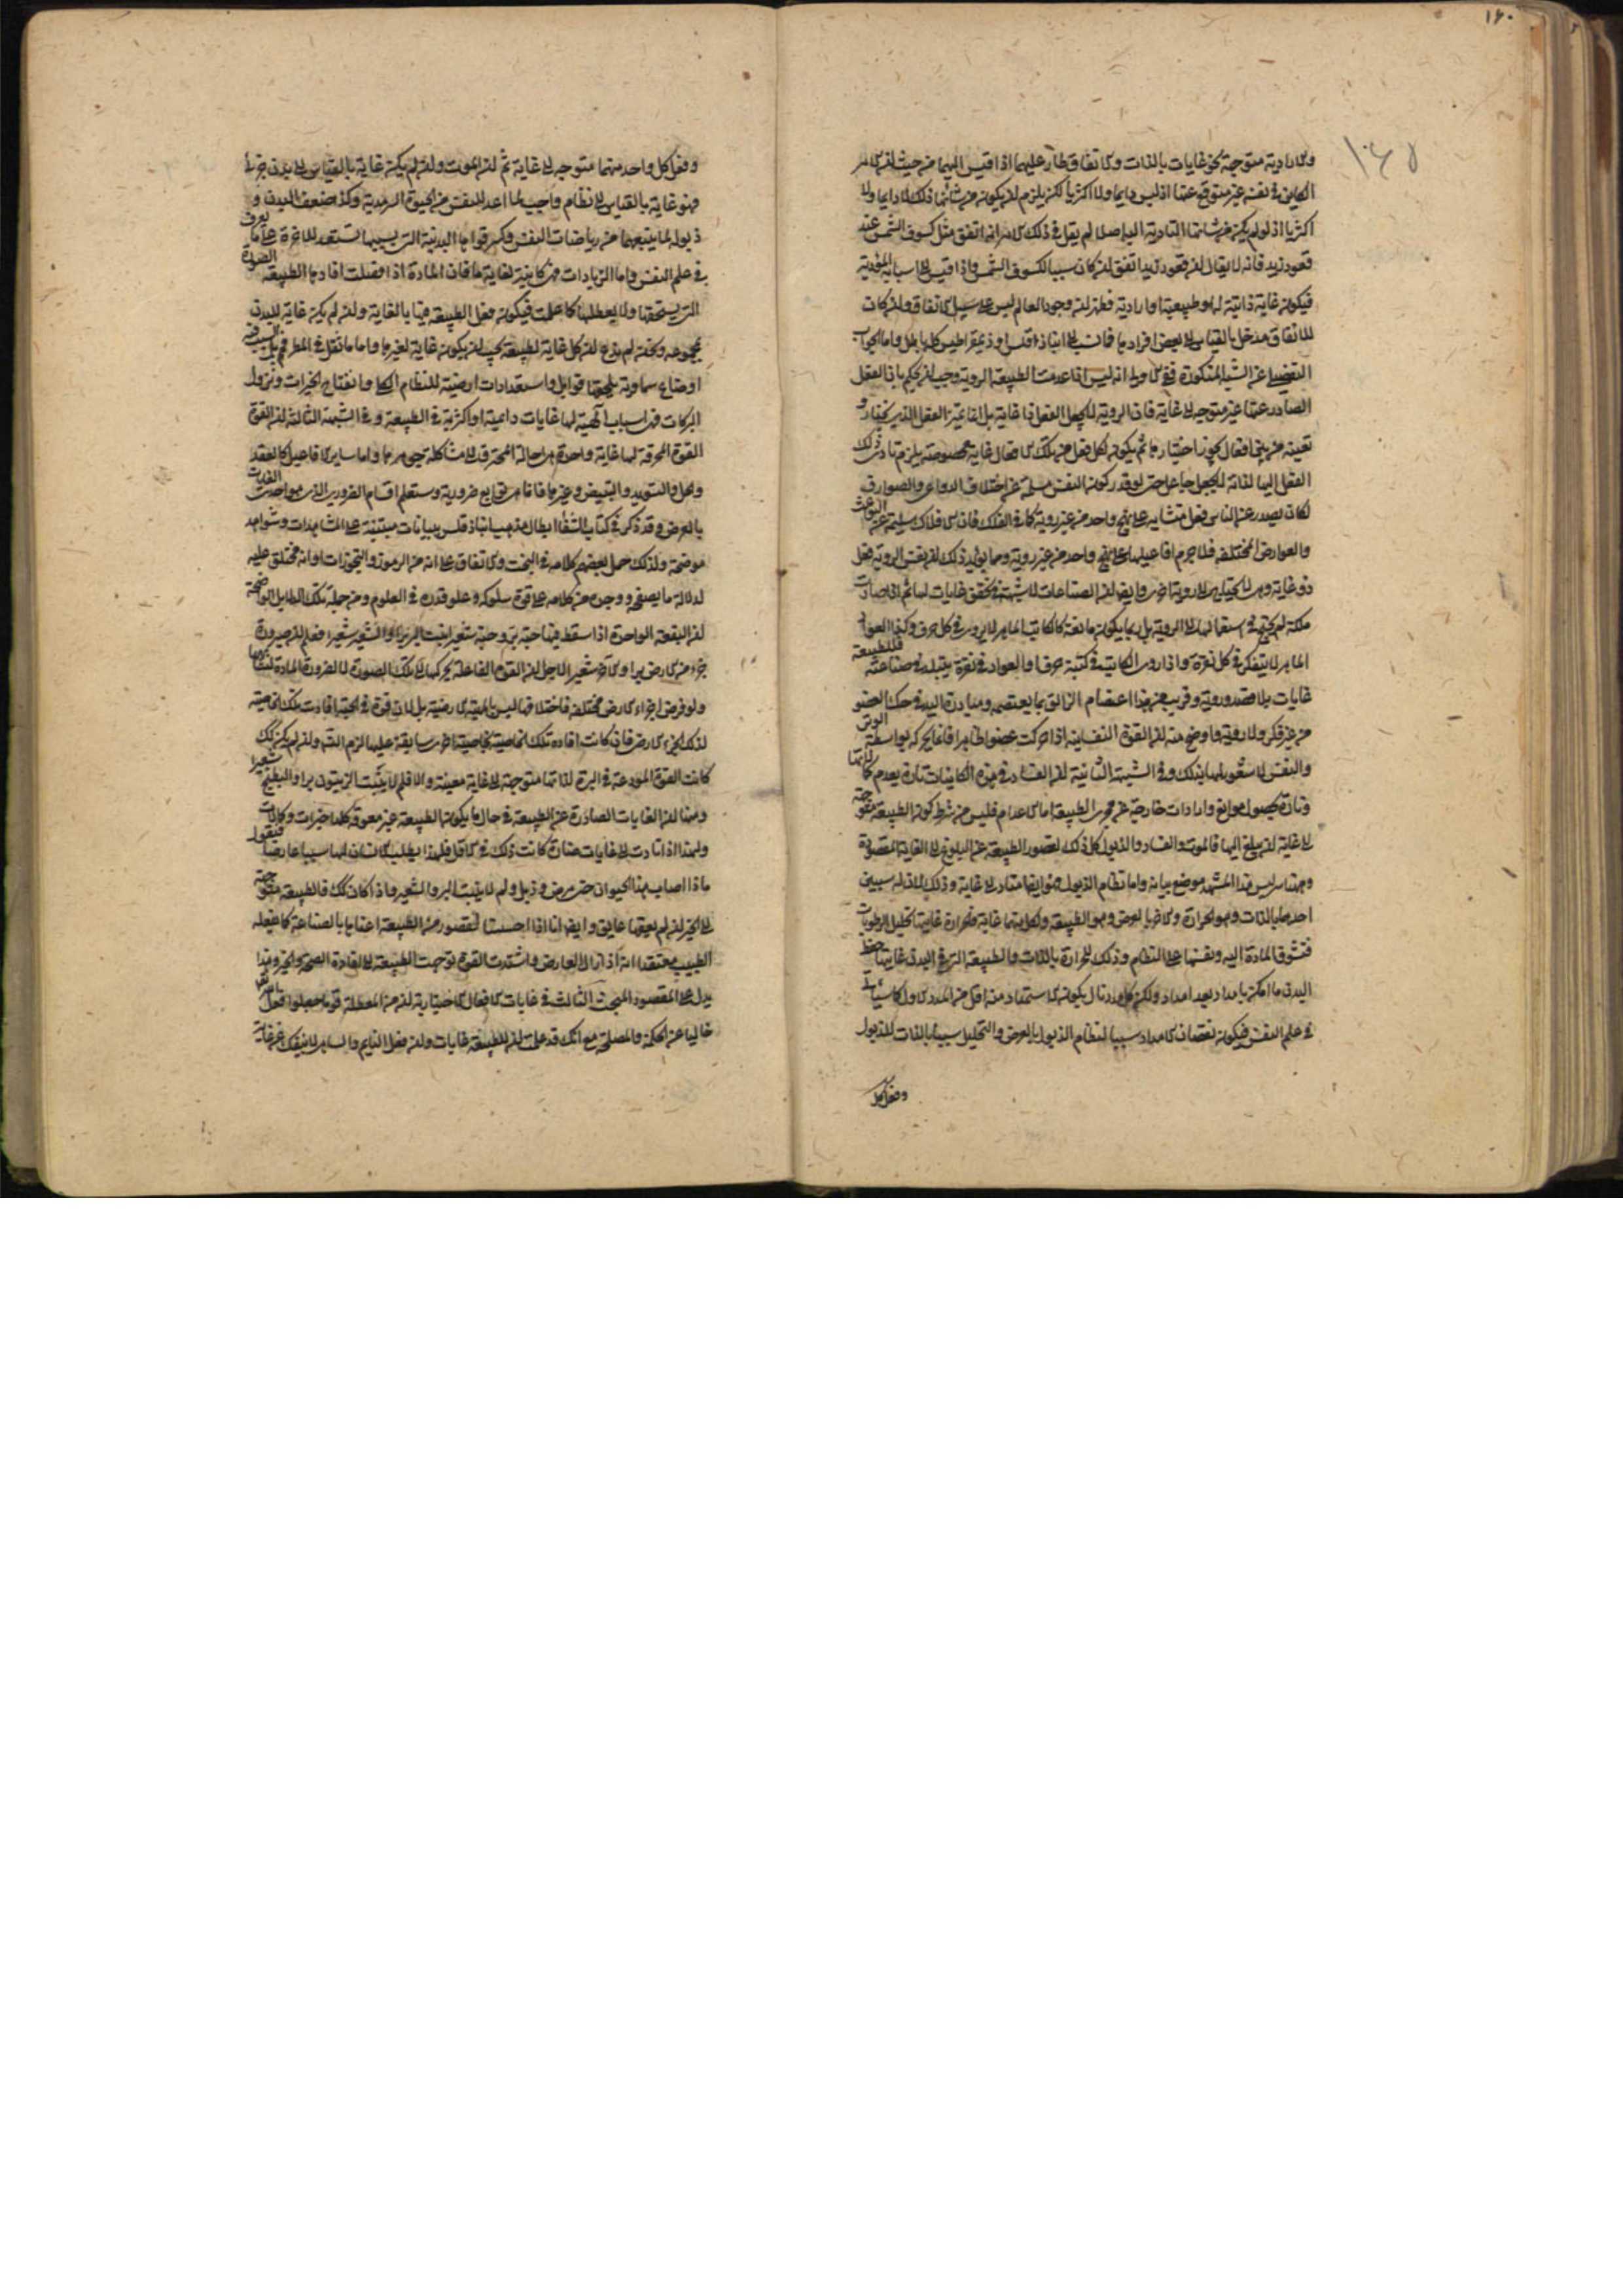 ١٤٠
١٤٥
والارادية متوجهة نحو غايات بالذات والاتفاق طار عليهما اذا قيس اليهما من حيث ان الامر
الكاين في نفسه غير متوقع عنها اذ ليس دايما ولا اكثريا لكن يلزم ان يكون من شانها ذلك لا دايما ولا
اكثريا اذ لو لم يكن من شانها التادية اليه اصلا لم يقل في ذلك الامر انه اتفق مثل كسوف الشمس عند
قعود زيد فانه لا يقال ان قعود زيد اتفق ان كان سببا لكسوف الشمس واذا قيس الى اسبابه المؤدية
فيكون غاية ذاتية له او طبيعية او ارادية فظهر ان وجود العالم ليس على سبيل الاتفاق وان كان
للاتفاق مدخل بالقياس الى بعض افرادها فما نسب الى انباذقلس وذيمقراطيس كلها باطل واما الجواب
التفصيلي عن الشبه المذكورة ففي الاولى انه ليس اذا عدمت الطبيعة الروية وجب ان يحكم بان الفعل
الصادر عنها غير متوجه الى غاية فان الروية لا يجعل الفعل ذا غاية بل انما تميز الفعل الذي يختار و
تعينه من بين افعال يجوز اختيارها ثم يكون لكل فعل من تلك الافعال غاية مخصوصة يلزم تادى ذلك
الفعل اليها لذاته لا بجعل جاعل حتى لو قدر كون النفس مسلمة عن اختلاف الدواعي والصوارف
لكان يصدر عن الناس فعل متشابه على نهج واحد من غير روية كما في الفلك فان الافلاك سليمة عن البواعث
والعوارض المختلفة فلا جرم افاعيلها على نهج واحد من غير روية ومما يؤيد ذلك ان نفس الروية فعل
ذو غاية وهي لا يحتاج الى روية اخرى وايضا ان الصناعات لا شبهة في تحقق غايات لها ثم اذا صارت
ملكة لم يحتج في استعمالها الى الروية بل ربما يكون مانعة كالكاتب الماهر لا يروى في كل حرف وكذا العواد
الماهر لا يتفكر في كل نقرة واذا روى الكاتب في كتبة حرف او العواد في نقرة يتبلد في صناعته فللطبيعة
غايات بلا قصد وروية وقريب من هذا اعتصام الزالق بما يعتصمه ومبادرة اليد في حك العضو
من غير فكر ولا روية واوضح منه ان القوة النفسانية اذا حركت عضوا ظاهرا فانما يحركه بواسطة الوتر
والنفس لا شعور لها بذلك وفي الشبهة الثانية ان الفساد في هذه الكاينات تارة بعدم كمالاتها
وتارة بحصول موانع وارادات خارجة عن مجرى الطبيعة اما الاعدام فليس من شرط كون الطبيعة متوجهة
الى غاية ان يبلغ اليها فالموت والفساد والذبول كل ذلك لقصور الطبيعة عن البلوغ الى الغاية المقصودة
وههنا سر ليس هذا المشهد موضع بيانه واما نظام الذبول فهو ايضا متاد الى غاية وذلك لان له سببين
احدهما بالذات وهو الحرارة والاخر بالعرض وهو الطبيعة ولكل منهما غاية فالحرارة غايتها تحليل الرطوبات
فتسوق المادة اليه ونفسها على النظام وذلك للحرارة بالذات والطبيعة التي في البدن غايتها حفظ
البدن ما امكن بامداد بعد امداد ولكن كل مدد تال يكون الاستمداد منه اقل من المدد الاول كما سياتي
في علم النفس فيكون نقصان الامداد سببا لنظام الذبول بالعرض والتحليل سببا بالذات للذبول
وفعل كل
وفعل كل واحد منهما متوجه الى غاية ثم ان الموت وان لم يكن غاية بالقياس الى بدن جزئي
فهو غاية بالقياس الى نظام واجب لما اعد للنفس من الحيوة السرمدية وكذا ضعف البدن و
ذبوله لما يتبعهما من رياضات النفس وكسر قواها البدنية التي بسببها تستعد للاخرة على ما يعرف
في علم النفس واما الزيادات فهي كاينة لغاية ما فان المادة اذا فضلت افادها الطبيعة الصورة
التي يستحقها ولا يعطلها كما علمت فيكون فعل الطبيعة فيها بالغاية وان لم يكن غاية للبدن
بمجموعه ونحن لم ندع ان كل غاية لطبيعة يجب ان يكون غاية لغيرها واما ما نقل في المطر فهو بل السبب فيه
اوضاع سماوية يلحقها قوابل واستعدادات ارضية للنظام الكلي وانفتاح الخيرات ونزول
البركات فهي اسباب الهية لها غايات دايمية او اكثرية في الطبيعة وفي الشبهة الثالثة ان القوة
القوة المحرقة لها غاية واحدة هي احالة المحترق الى مشاكلة جوهرها واما ساير الافاعيل كالعقد
والحل والتسويد والتبييض وغيرها فانما هي توابع ضرورية وستعلم اقسام الضروري الذي هو احدى الغايات
بالعرض وقد ذكر في كتاب الشفا ابطال مذهب انباذقلس ببيانات مبتنية على المشاهدات وشواهد
موضحة ولذلك حمل بعضهم كلامه في البخت والاتفاق على انه من الرموز والتجوزات او انه مختلق عليه
لدلالة ما يصفى ووجد من كلامه على قوة سلوكه وعلو قدره في العلوم ومن جملة تلك الدلايل الواضحة
ان البقعة الواحدة اذا سقط فيها حبة بر وحبة شعير انبت البر برا والشعير شعيرا فعلم ان صيرورة
جزء من الارض برا والاخر شعيرا لاجل ان القوة الفاعلة يحركها الى تلك الصورة لا لضرورة المادة لتشابهها
ولو فرض اجزاء الارض مختلفة فاختلافها ليس بالمهية الارضية بل لان قوة في الحبة افادت تلك الخاصية
لذلك الجزء الارضي فان كانت افادة تلك الخاصية بخاصية اخرى سابقة عليها لزم التس وان لم يكن كذلك
كانت القوة المودعة في البرة لذاتها متوجهة الى غاية معينة والا فلم لا ينبت الزيتون برا والبطيخ شعيرا
ومنها ان الغايات الصادرة عن الطبيعة في حال ما يكون الطبيعة غير معوقة كلها خيرات وكمالات
ولهذا اذا تادت الى غايات ضارة كانت ذلك في الاقل فلهذا يطلب الانسان لها سببا عارضا فيقول
ماذا اصاب هذا الحيوان حتى مرض وذبل ولم لا ينبت البر والشعير واذا كان كذلك فالطبيعة متوجهة
الى الخير ان لم يعقها عايق وايضا انا اذا احسسنا بقصور من الطبيعة اعناها بالصناعة كما يفعله
الطبيب معتقدا انه اذا زال العارض واشتدت القوة توجهت الطبيعة الى افادة الصحة والخير وهذا
يدل على المقصود المبحث الثالث في غايات الافعال الاختيارية ان من المعطلة قوما جعلوا فعل الله تعالى
خاليا عن الحكمة والمصلحة مع انك قد علمت ان للطبيعة غايات وان فعل النايم والساهي لا ينفك عن غاية